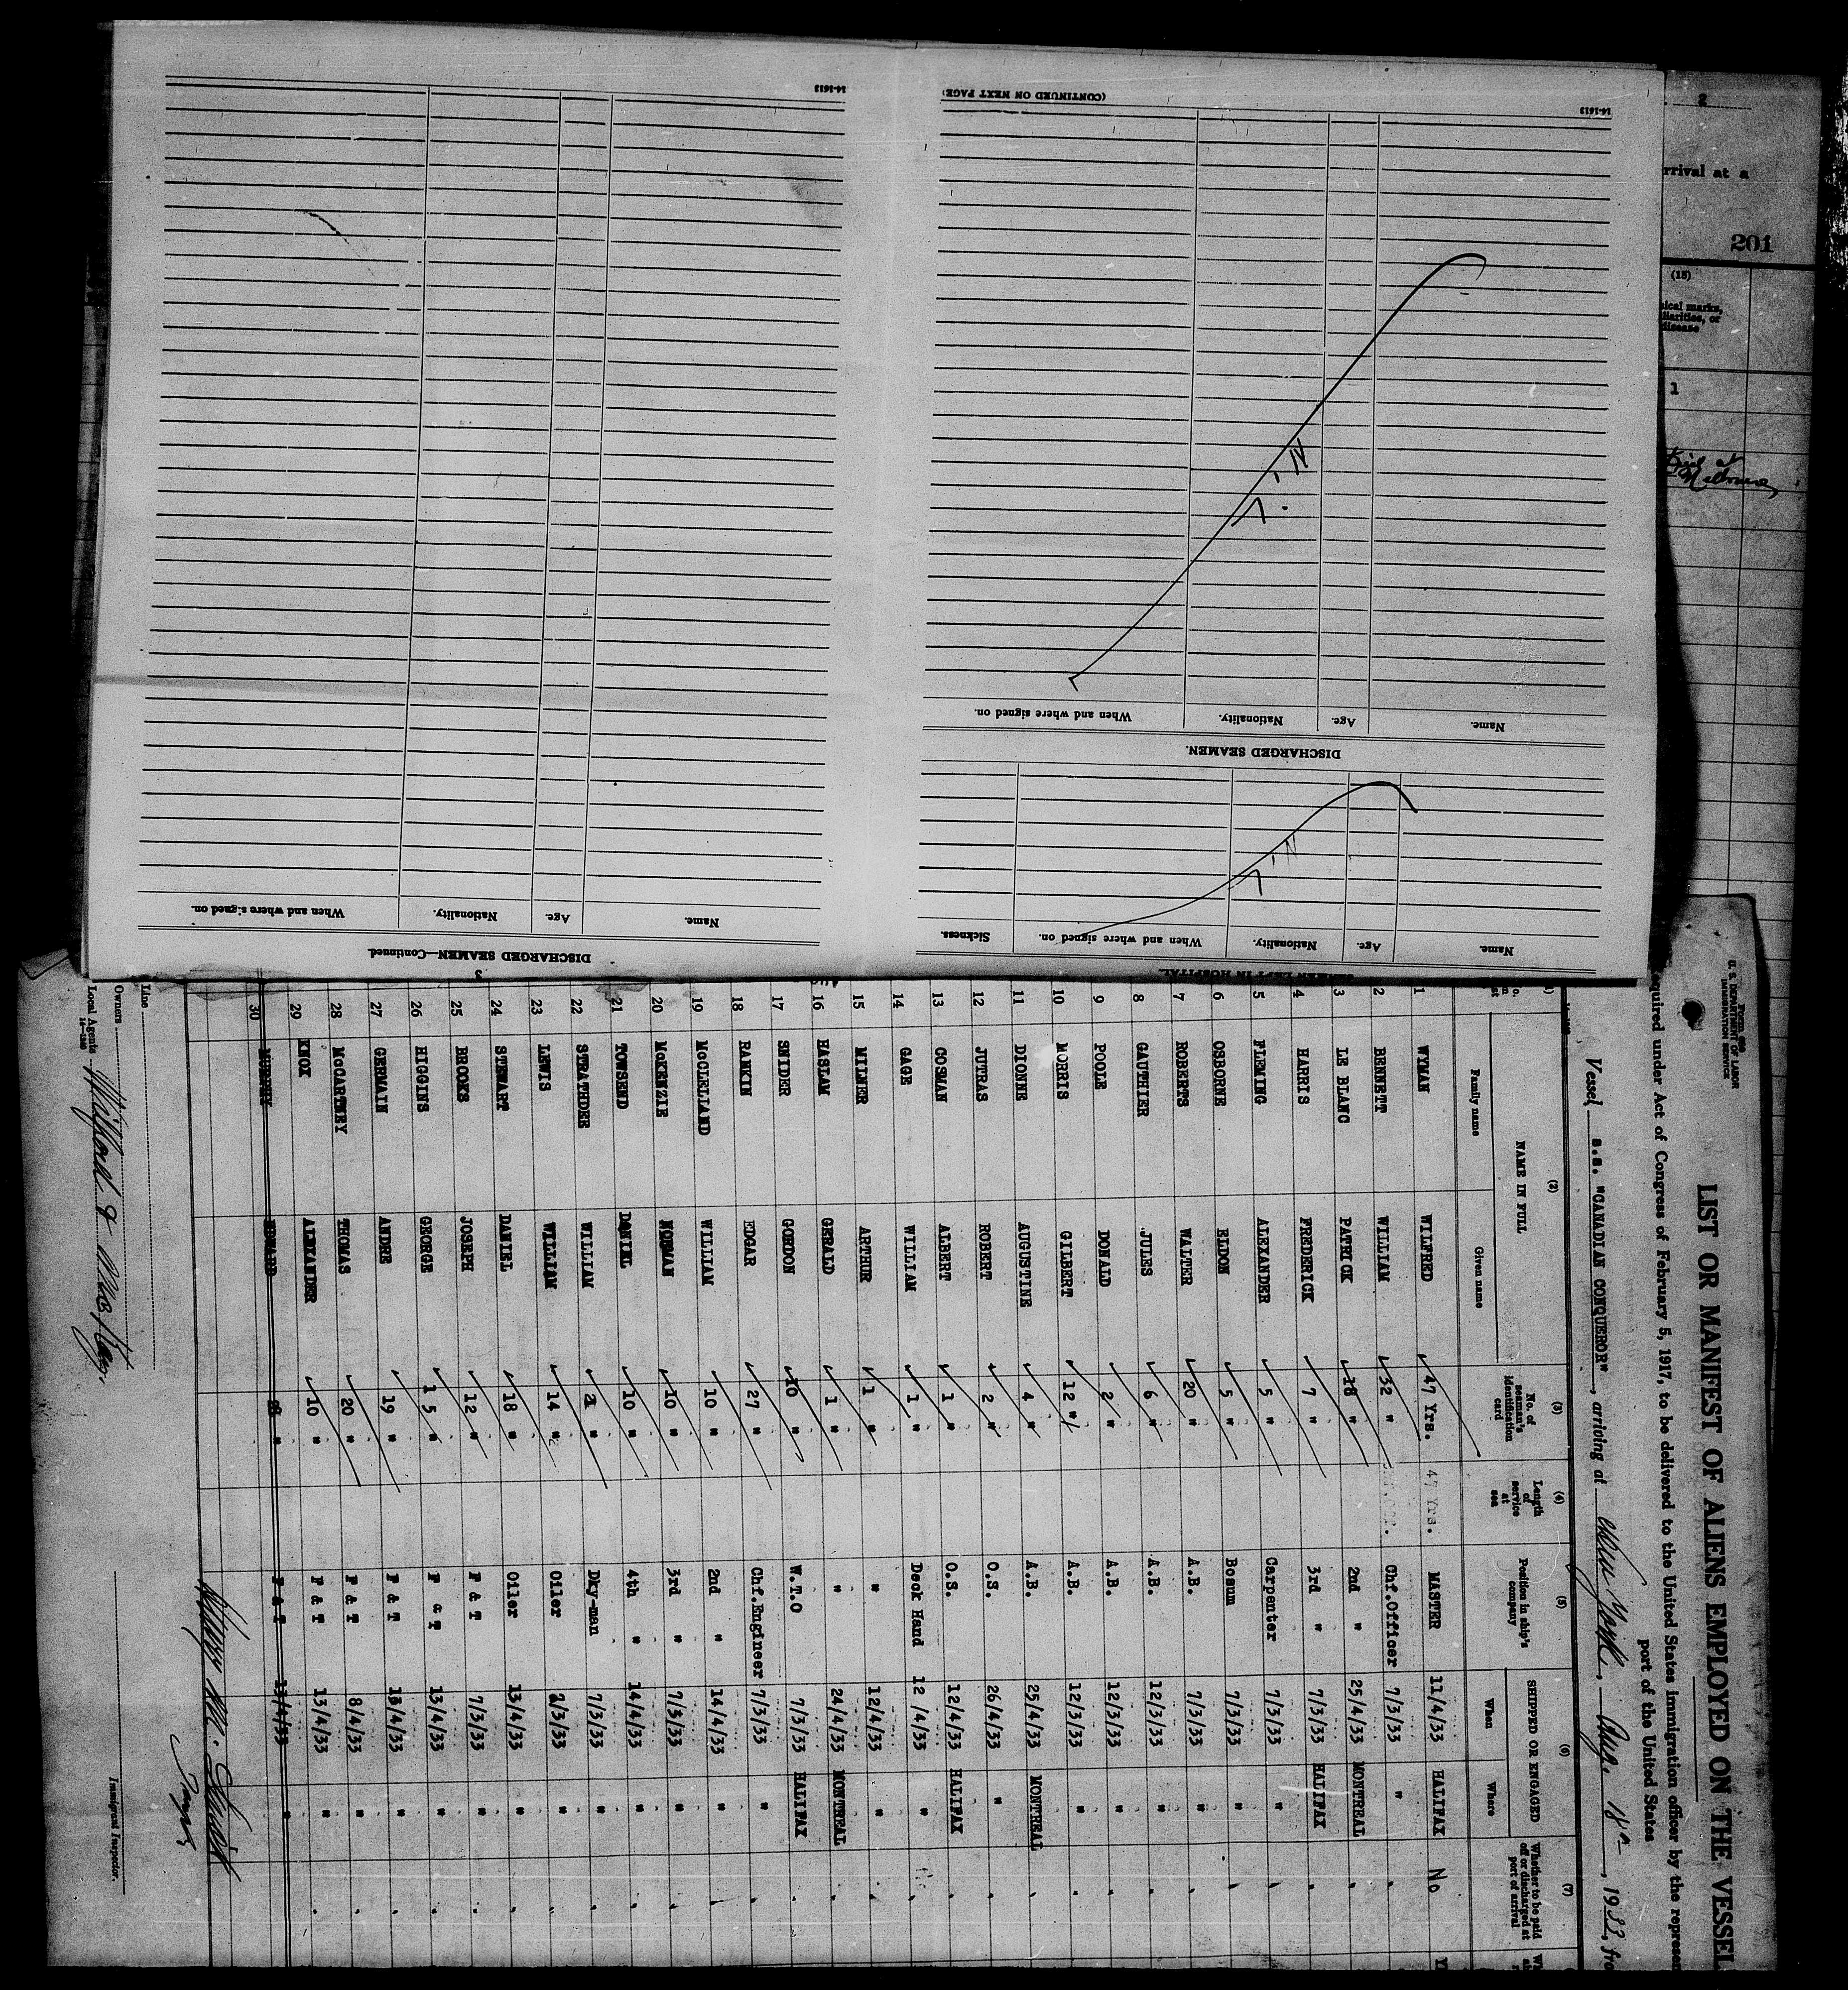 Form 689
U. S. DEPARTMENT OF LABOR
IMMIGRATION SERVICE
LIST OR MANIFEST OF ALIENS EMPLOYED ON THE VESSEL
quired under Act of Congress of February 5, 1917, to be delivered to the United States immigration officer by the represen
port of the United States
Vessel s.s. "CANADIAN CONQUEROR", arriving at New York, Aug. 18th, 1933, fro
(2) (3) (4) (5) (6) (7)
NAME IN FULL
Family name Given name
No. of seaman's identification card
Length of service at sea
Position in ship's company
SHIPPED OR ENGAGED
When Where
Whether to be paid off or discharged at port of arrival
1 WYMAN WILFRED 47 Yrs. 47 Yrs. MASTER 11/4/33 HALIFAX No
2 BENNETT WILLIAM 32 " Chf.Officer 7/3/33 "
3 LE BLANC PATRICK 18 " 2nd " 25/4/33 MONTREAL
4 HARRIS FREDERICK 7 " 3rd " 7/3/33 HALIFAX
5 FLEMING ALEXANDER 5 " Carpenter 7/3/33 "
6 OSBORNE ELDON 5 " Bosun 7/3/33 "
7 ROBERTS WALTER 20 " A.B. 7/3/33 "
8 GAUTHIER JULES 6 " A.B. 12/3/33 "
9 POOLE DONALD 2 " A.B. 12/3/33 "
10 MORRIS GILBERT 12 " A.B. 12/3/33 "
11 DIONNE AUGUSTINE 4 " A.B. 25/4/33 MONTREAL
12 JUTRAS ROBERT 2 " O.S. 26/4/33 "
13 COSMAN ALBERT 1 " O.S. 12/4/33 HALIFAX
14 GAGE WILLIAM 1 " Deck Hand 12 /4/33 "
15 MILNER ARTHUR 1 " " 12/4/33 "
16 HASLAM GERALD 1 " " 24/4/33 MONTREAL
17 SNIDER GORDON 10 " W.T.O 7/3/33 HALIFAX
18 RANKIN EDGAR 27 " Chf.Engineer 7/3/33 "
19 McCLELLAND WILLIAM 10 " 2nd " 14/4/33 "
20 McKENZIE NORMAN 10 " 3rd " 7/3/33 "
21 TOWSEND DANIEL 10 " 4th " 14/4/33 "
22 STRATHDEE WILLIAM " Dky-man 7/3/33 "
23 LEWIS WILLIAM 14 " Oiler /3/33 "
24 STEWART DANIEL 18 " Oiler 13/4/33 "
25 BROOKS JOSEPH 12 " F & T 7/3/33 "
26 HIGGINS GEORGE 1 5 " F & T 13/4/33 "
27 GERMAIN ANDRE 19 " F & T 13/4/33 "
28 McCARTNEY THOMAS 20 " F & T 8/4/33 "
29 KNOX ALEXANDER 10 " F & T 13/4/33 "
30 MURPHY EDWARD " F & T 13/4/33 "
Line
Owners
Local Agents
14-1240
Immigrant Inspector.
SEAMEN LEFT IN HOSPITAL.
Name. Age. Nationality. When and where signed on. Sickness.
DISCHARGED SEAMEN.
Name. Age. Nationality. When and where signed on.
14-1613
(CONTINUED ON NEXT PAGE)
3
DISCHARGED SEAMEN—Continued
Name. Age. Nationality. When and where signed on.
14-1613
2
rrival at a
201
(15)
sical marks,
liarities, or
disease
1